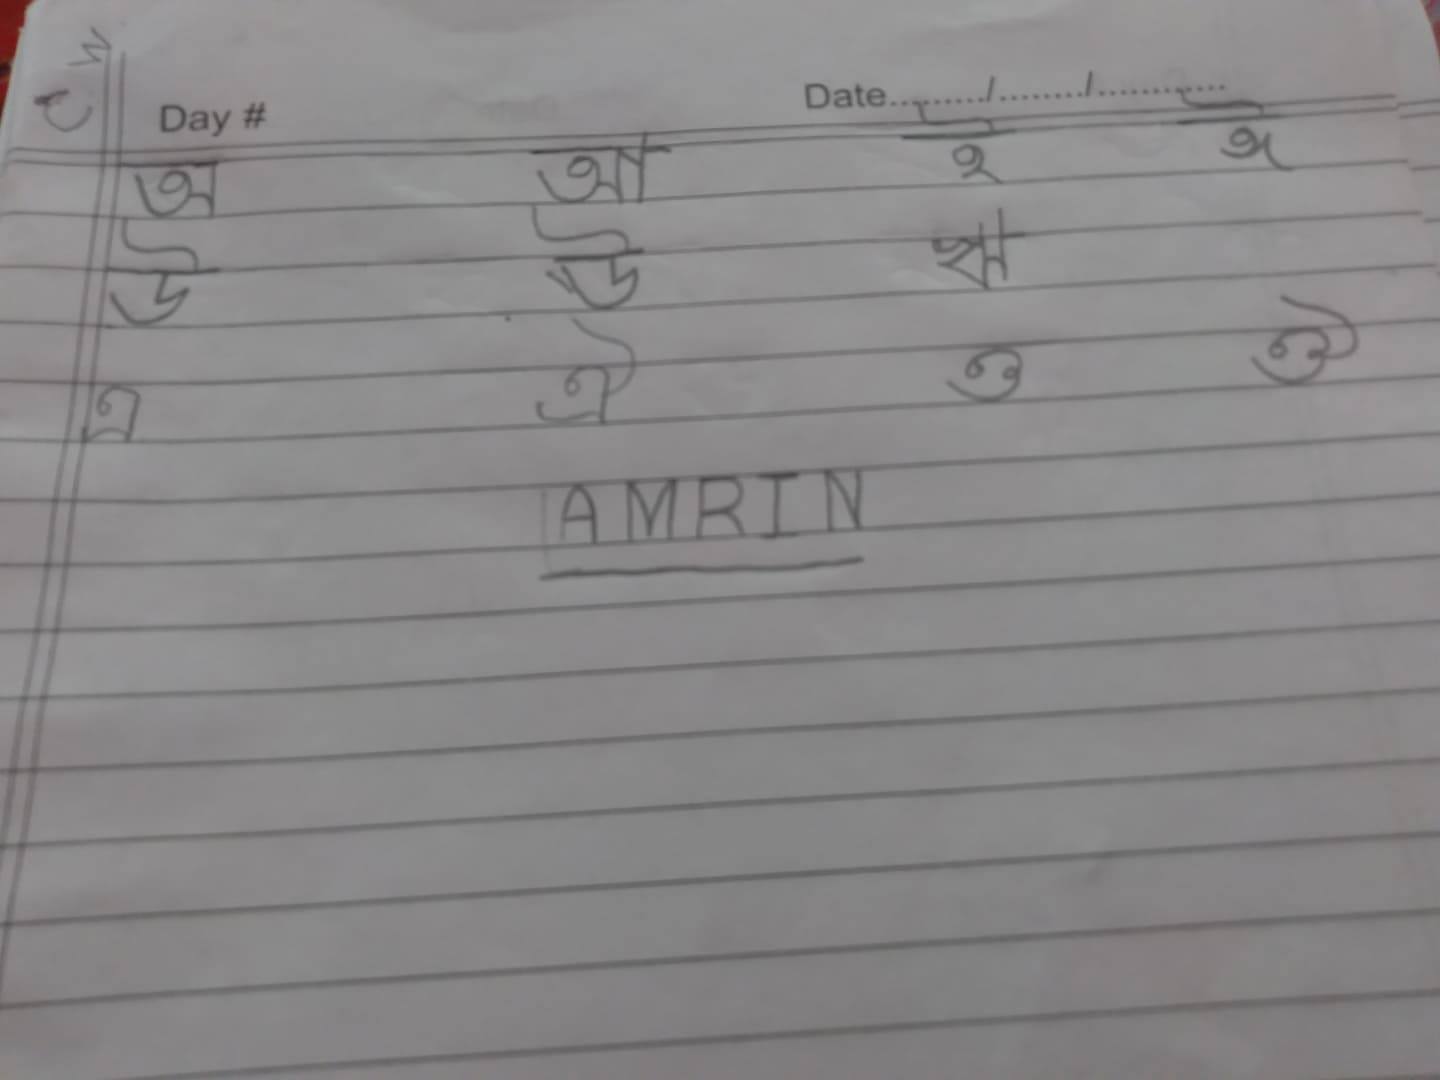 C W
Day # Date........./......../............
অ আ ই ঈ
উ ঊ ঋ
এ ঐ ও ঔ
AMRIN